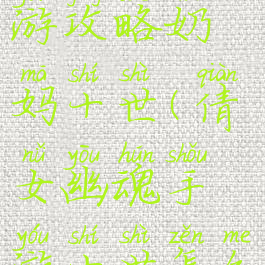 游攻略奶
mā shí shì qiàn
妈十世(倩
nǚ yōu hún shǒu
女幽魂手
yóu shí shì zěn me
游十世怎么